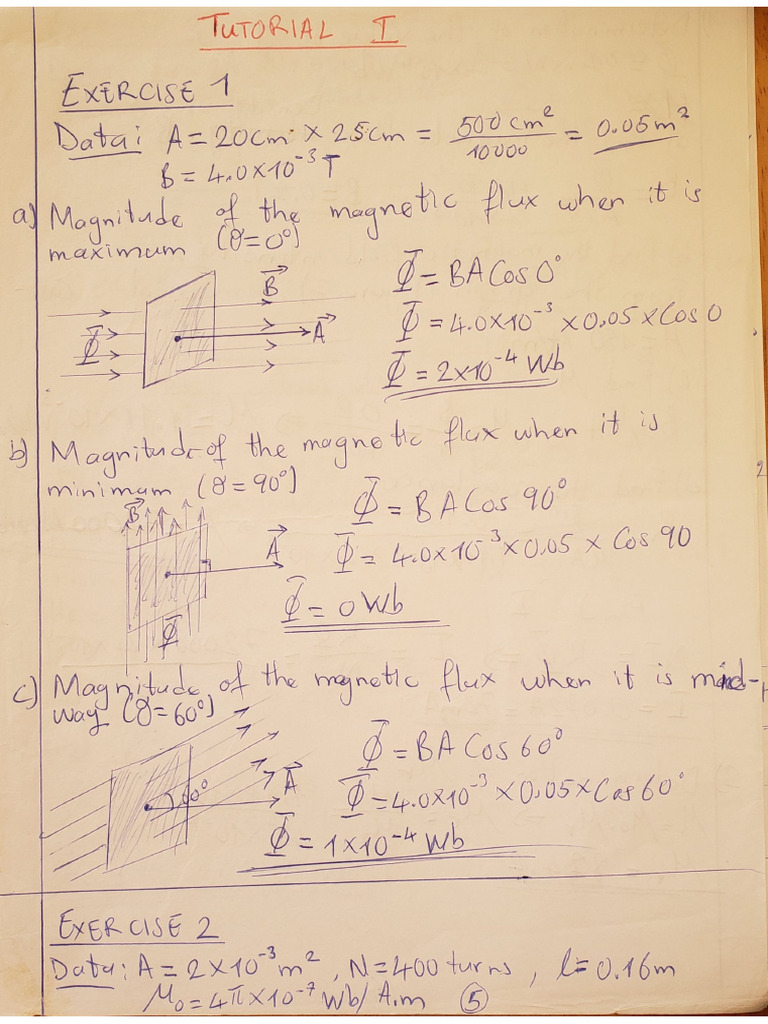 TUTORIAL I
EXERCISE 1
Data: A = 20cm × 25cm = 500 cm² / 10000 = 0.05m²
B = 4.0×10⁻³T
a) Magnitude of the magnetic flux when it is
maximum (θ=0°)
Φ = BA Cos 0°
B⃗
Φ = 4.0×10⁻³ × 0.05 × Cos 0
Φ
A⃗
Φ = 2×10⁻⁴ Wb
b) Magnitude of the magnetic flux when it is
minimum (θ=90°)
Φ = BA Cos 90°
B⃗
A⃗
Φ = 4.0×10⁻³ × 0.05 × Cos 90
Φ = 0 Wb
Φ
c) Magnitude of the magnetic flux when it is mid-
way (θ=60°)
Φ = BA Cos 60°
60°
A⃗
Φ = 4.0×10⁻³ × 0.05 × Cos 60°
Φ = 1×10⁻⁴ Wb
EXERCISE 2
Data: A = 2×10⁻³m², N=400 turns, l = 0.16m
μ₀ = 4π×10⁻⁷ Wb/A.m ⑤